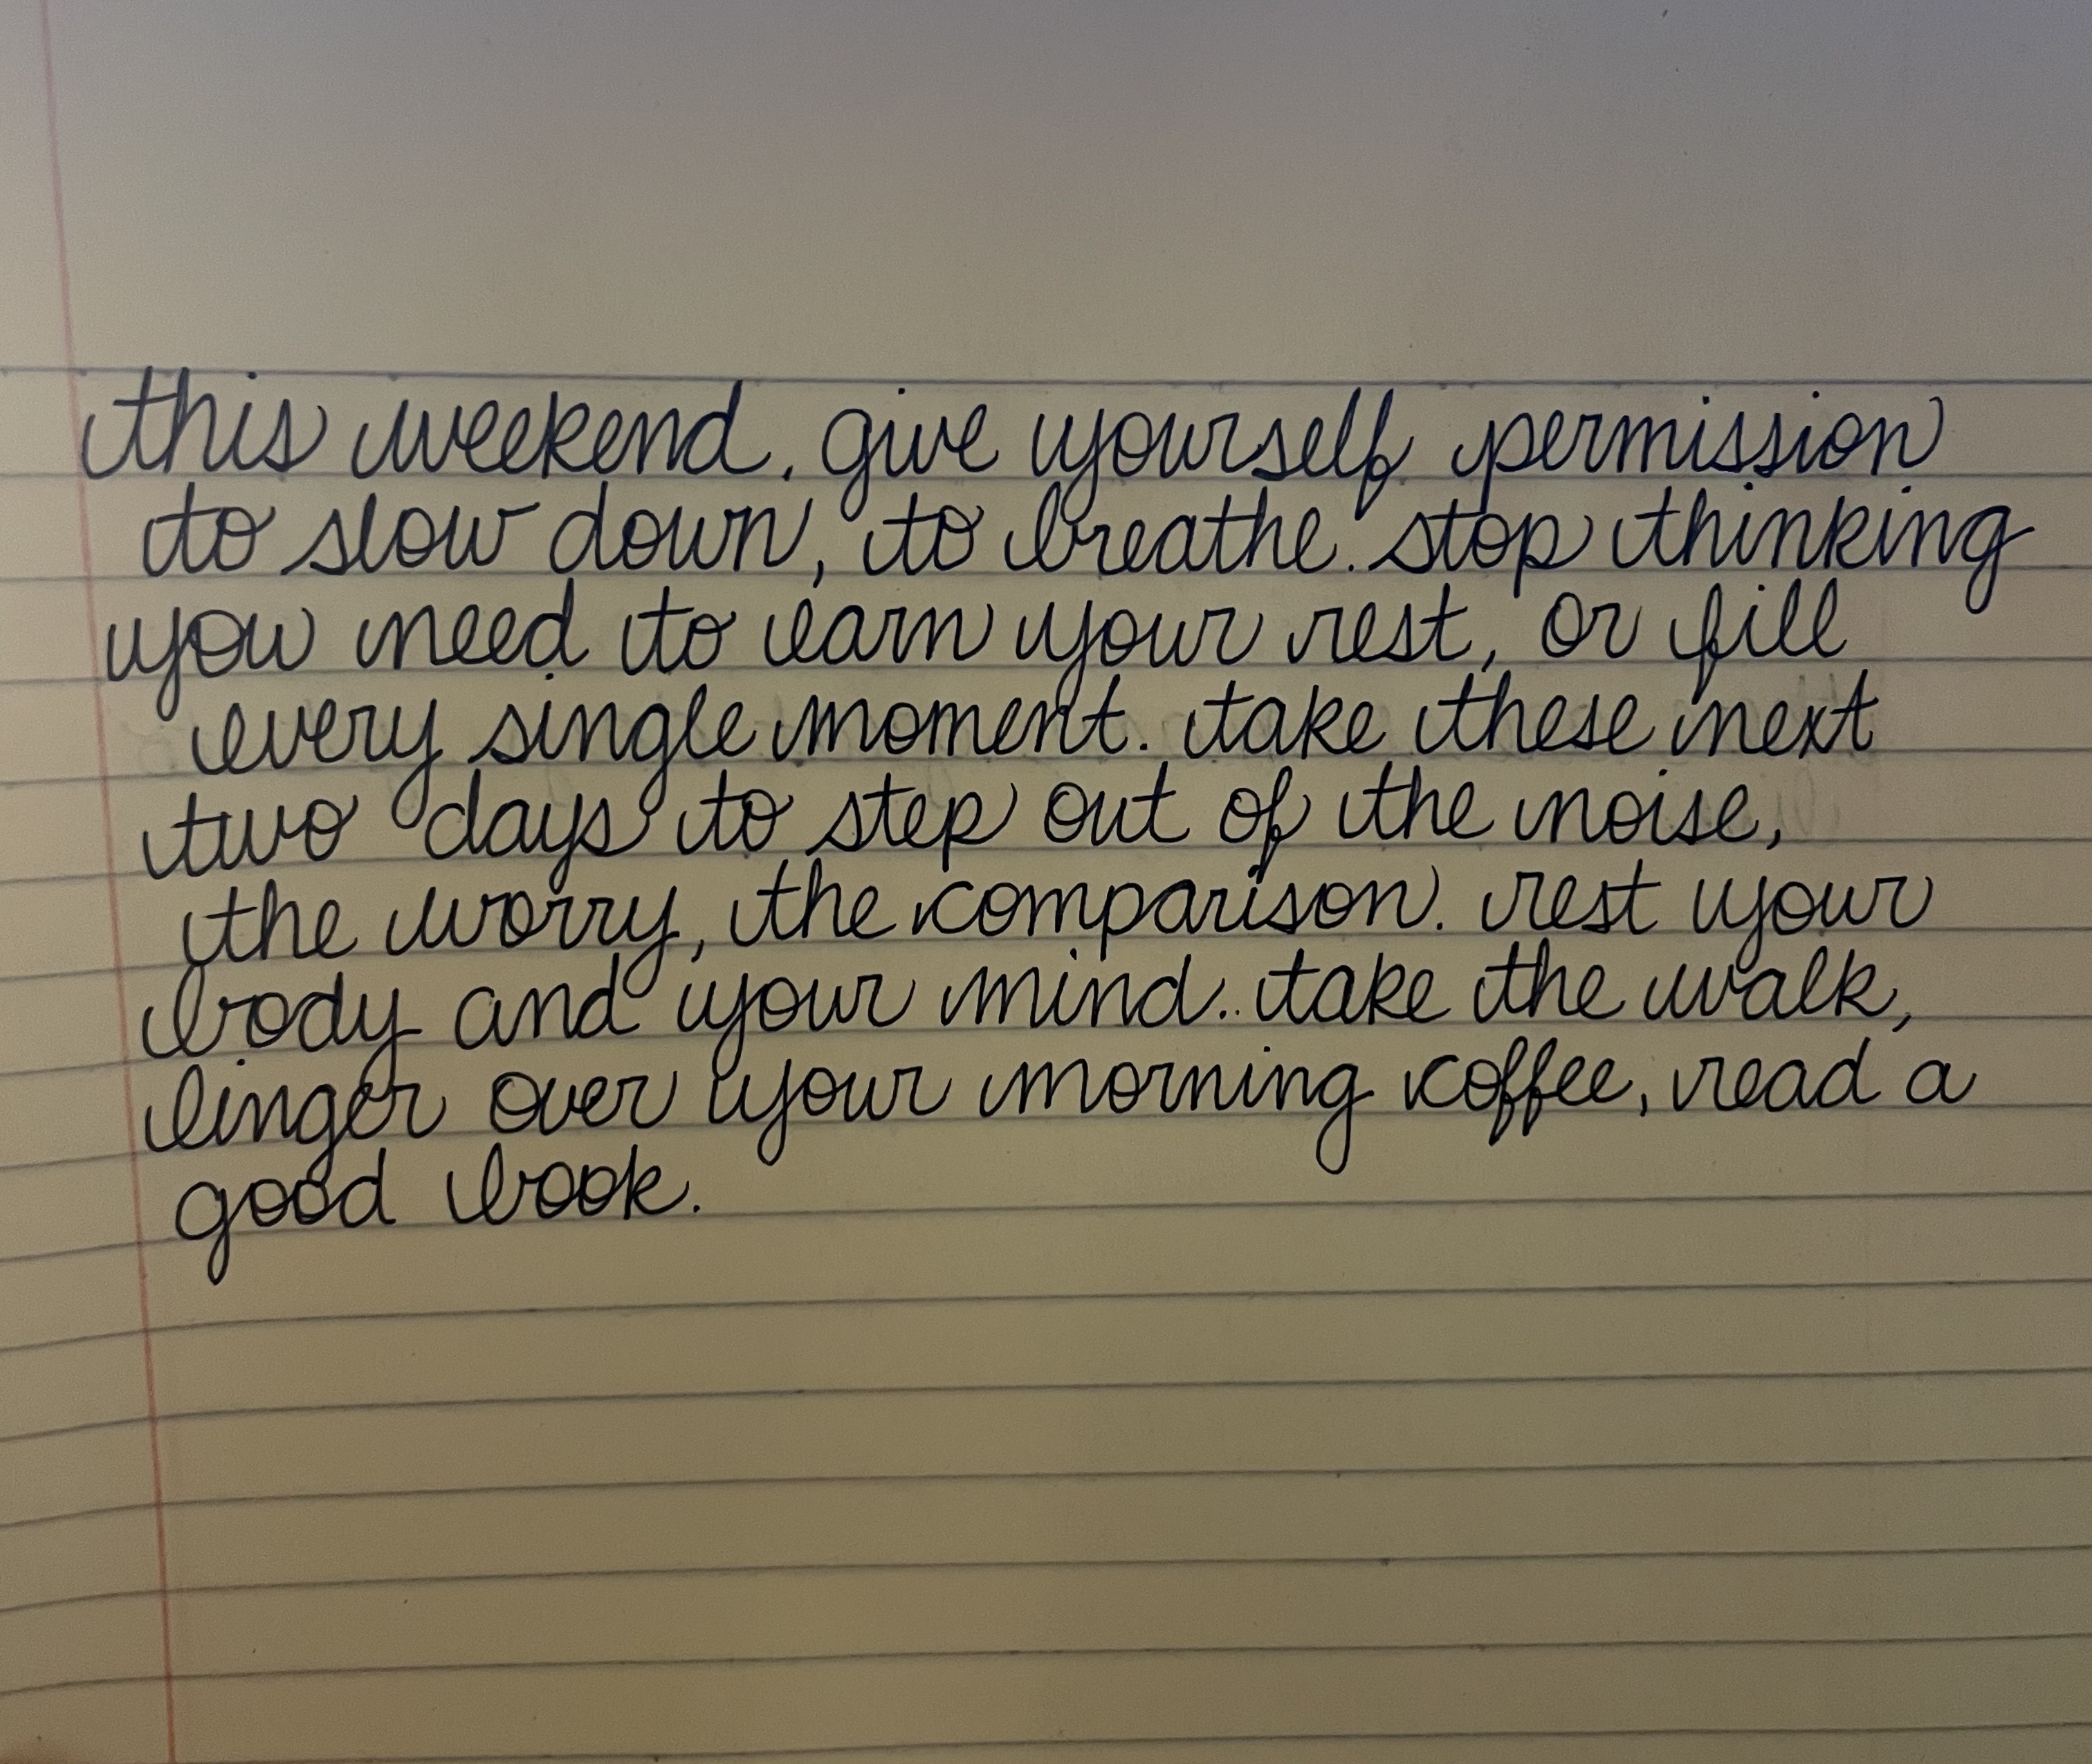 this weekend, give yourself permission
to slow down, to breathe. stop thinking
you need to earn your rest, or fill
every single moment. take these next
two days to step out of the noise,
the worry, the comparison. rest your
body and your mind.. take the walk,
linger over your morning coffee, read a
good book.